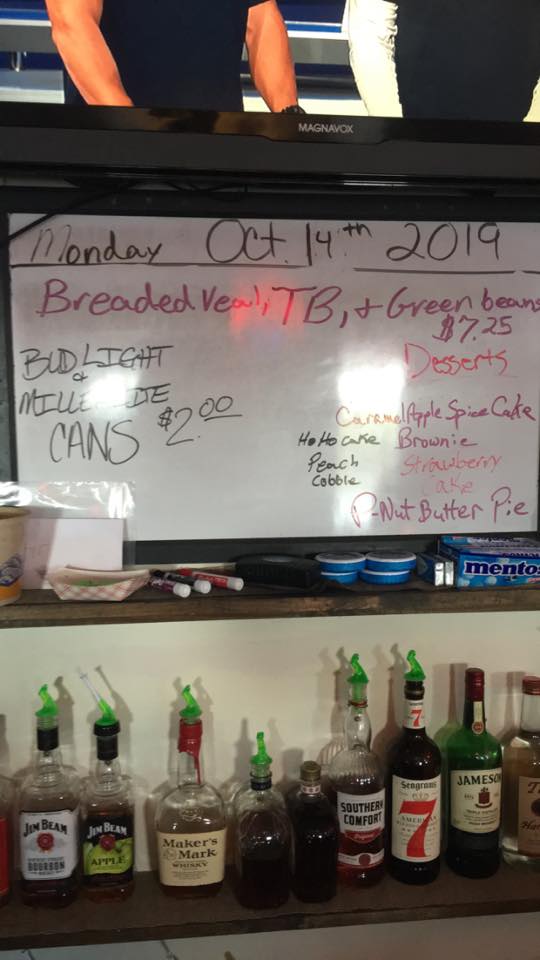 MAGNAVOX
Monday Oct. 14th 2019
Breaded Veal, TB, + Green beans
$7.25
BUD LIGHT
&
MILLER LITE
CANS $2.00
Desserts
Caramel Apple Spice Cake
HoHo cake Brownie
Peach Cobble
Strawberry Cake
P-Nut Butter Pie
mentos
JIM BEAM
BOURBON
JIM BEAM
APPLE
Maker's
Mark
WHISKY
SOUTHERN
COMFORT
7
Seagram's
7
AMERICAN
JAMESON